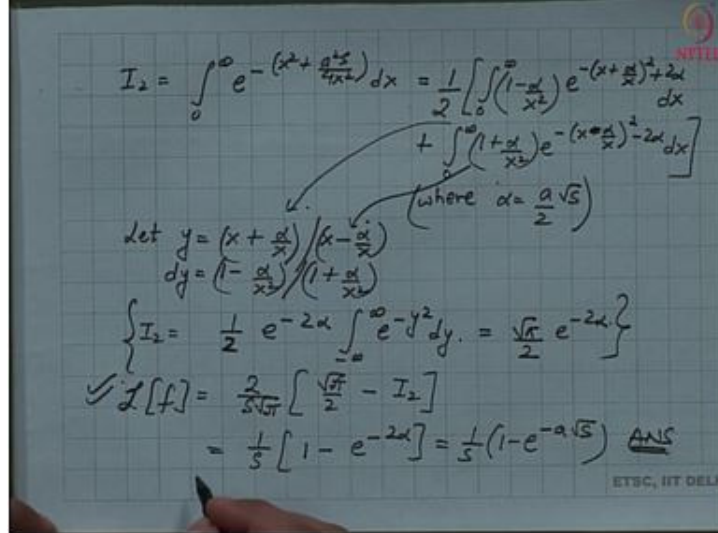 NPTEL
I₂ = ∫₀^∞ e^-(x² + a²s/4x²) dx = 1/2 [∫₀^∞ (1 - α/x²) e^-(x + α/x)² + 2α dx
+ ∫₀^∞ (1 + α/x²) e^-(x - α/x)² - 2α dx]
(where α = a/2 √s)
Let y = (x + α/x) / (x - α/x)
dy = (1 - α/x²) / (1 + α/x²)
{I₂ = 1/2 e^-2α ∫_-∞^∞ e^-y² dy. = √π/2 e^-2α.}
✓ L[f] = 2/s√π [√π/2 - I₂]
= 1/s [1 - e^-2α] = 1/s (1 - e^-a√s) ANS
ETSC, IIT DEL